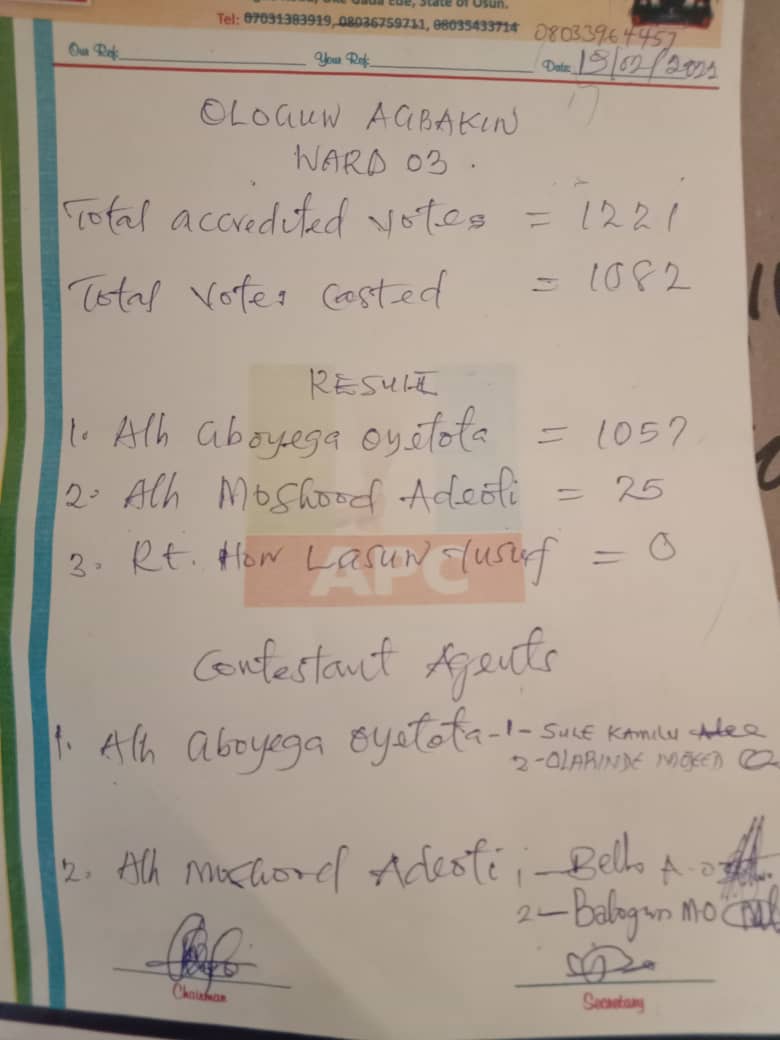 Ede, State of Osun.
Tel: 07031383919, 08036759711, 08035433714 08033964457
Our Ref: Your Ref: Date: 19/02/2022
OLOGUN AGBAKIN
WARD 03.
Total accredited votes = 1221
Total Votes Casted = 1082
RESULT
1. Alh aboyega oyetola = 1057
2. Alh Moshood Adeoti = 25
3. Rt. Hon Lasun Yusuf = 0
APC
Contestant Agents
1. Alh aboyega oyetola - 1 - SULE KAMILU
2 - OLARINDE MOJEED
2. Alh Moshood Adeoti 1 - Bello A.O
2 - Balogun M O
Chairman Secretary